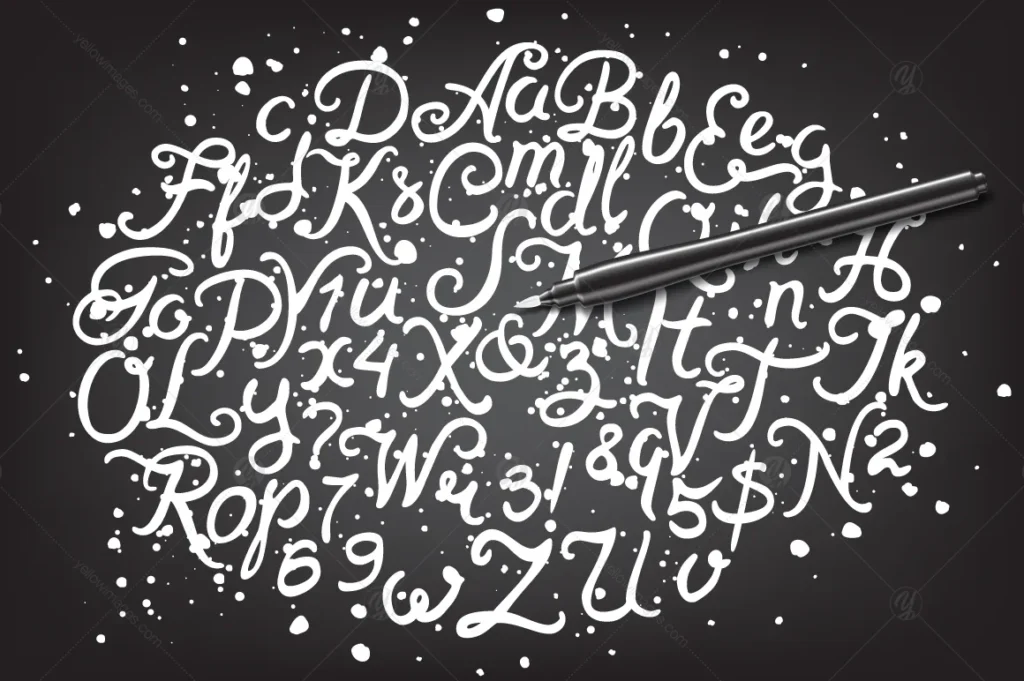 c D A a B b E e g
F f d K s C m d l l
G o P Y 1 u S I H
O L y x 4 X & M 3 t T n J k
R o p 7 ? W r 3 ! & q V 5 $ N 2
6 9 w Z U v
yellowimages.com